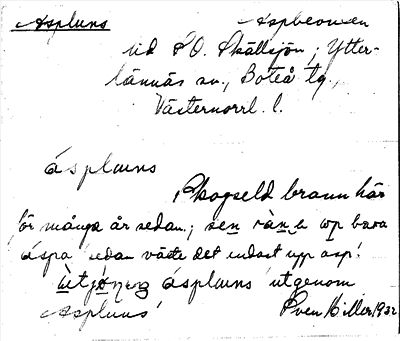 Aspluns Aspbronnen
vid SO. Skällsjön, Ytter-
lännäs sn., Boteå tg,
Västernorrl. l.
ásplauns
Skogseld brann här
för många år sedan; sen ràn a up bara
áspa 'sedan växte det endast upp asp'.
ùtjénưg ásplauns 'utgenom
Aspluns' Sven Hiller 1932